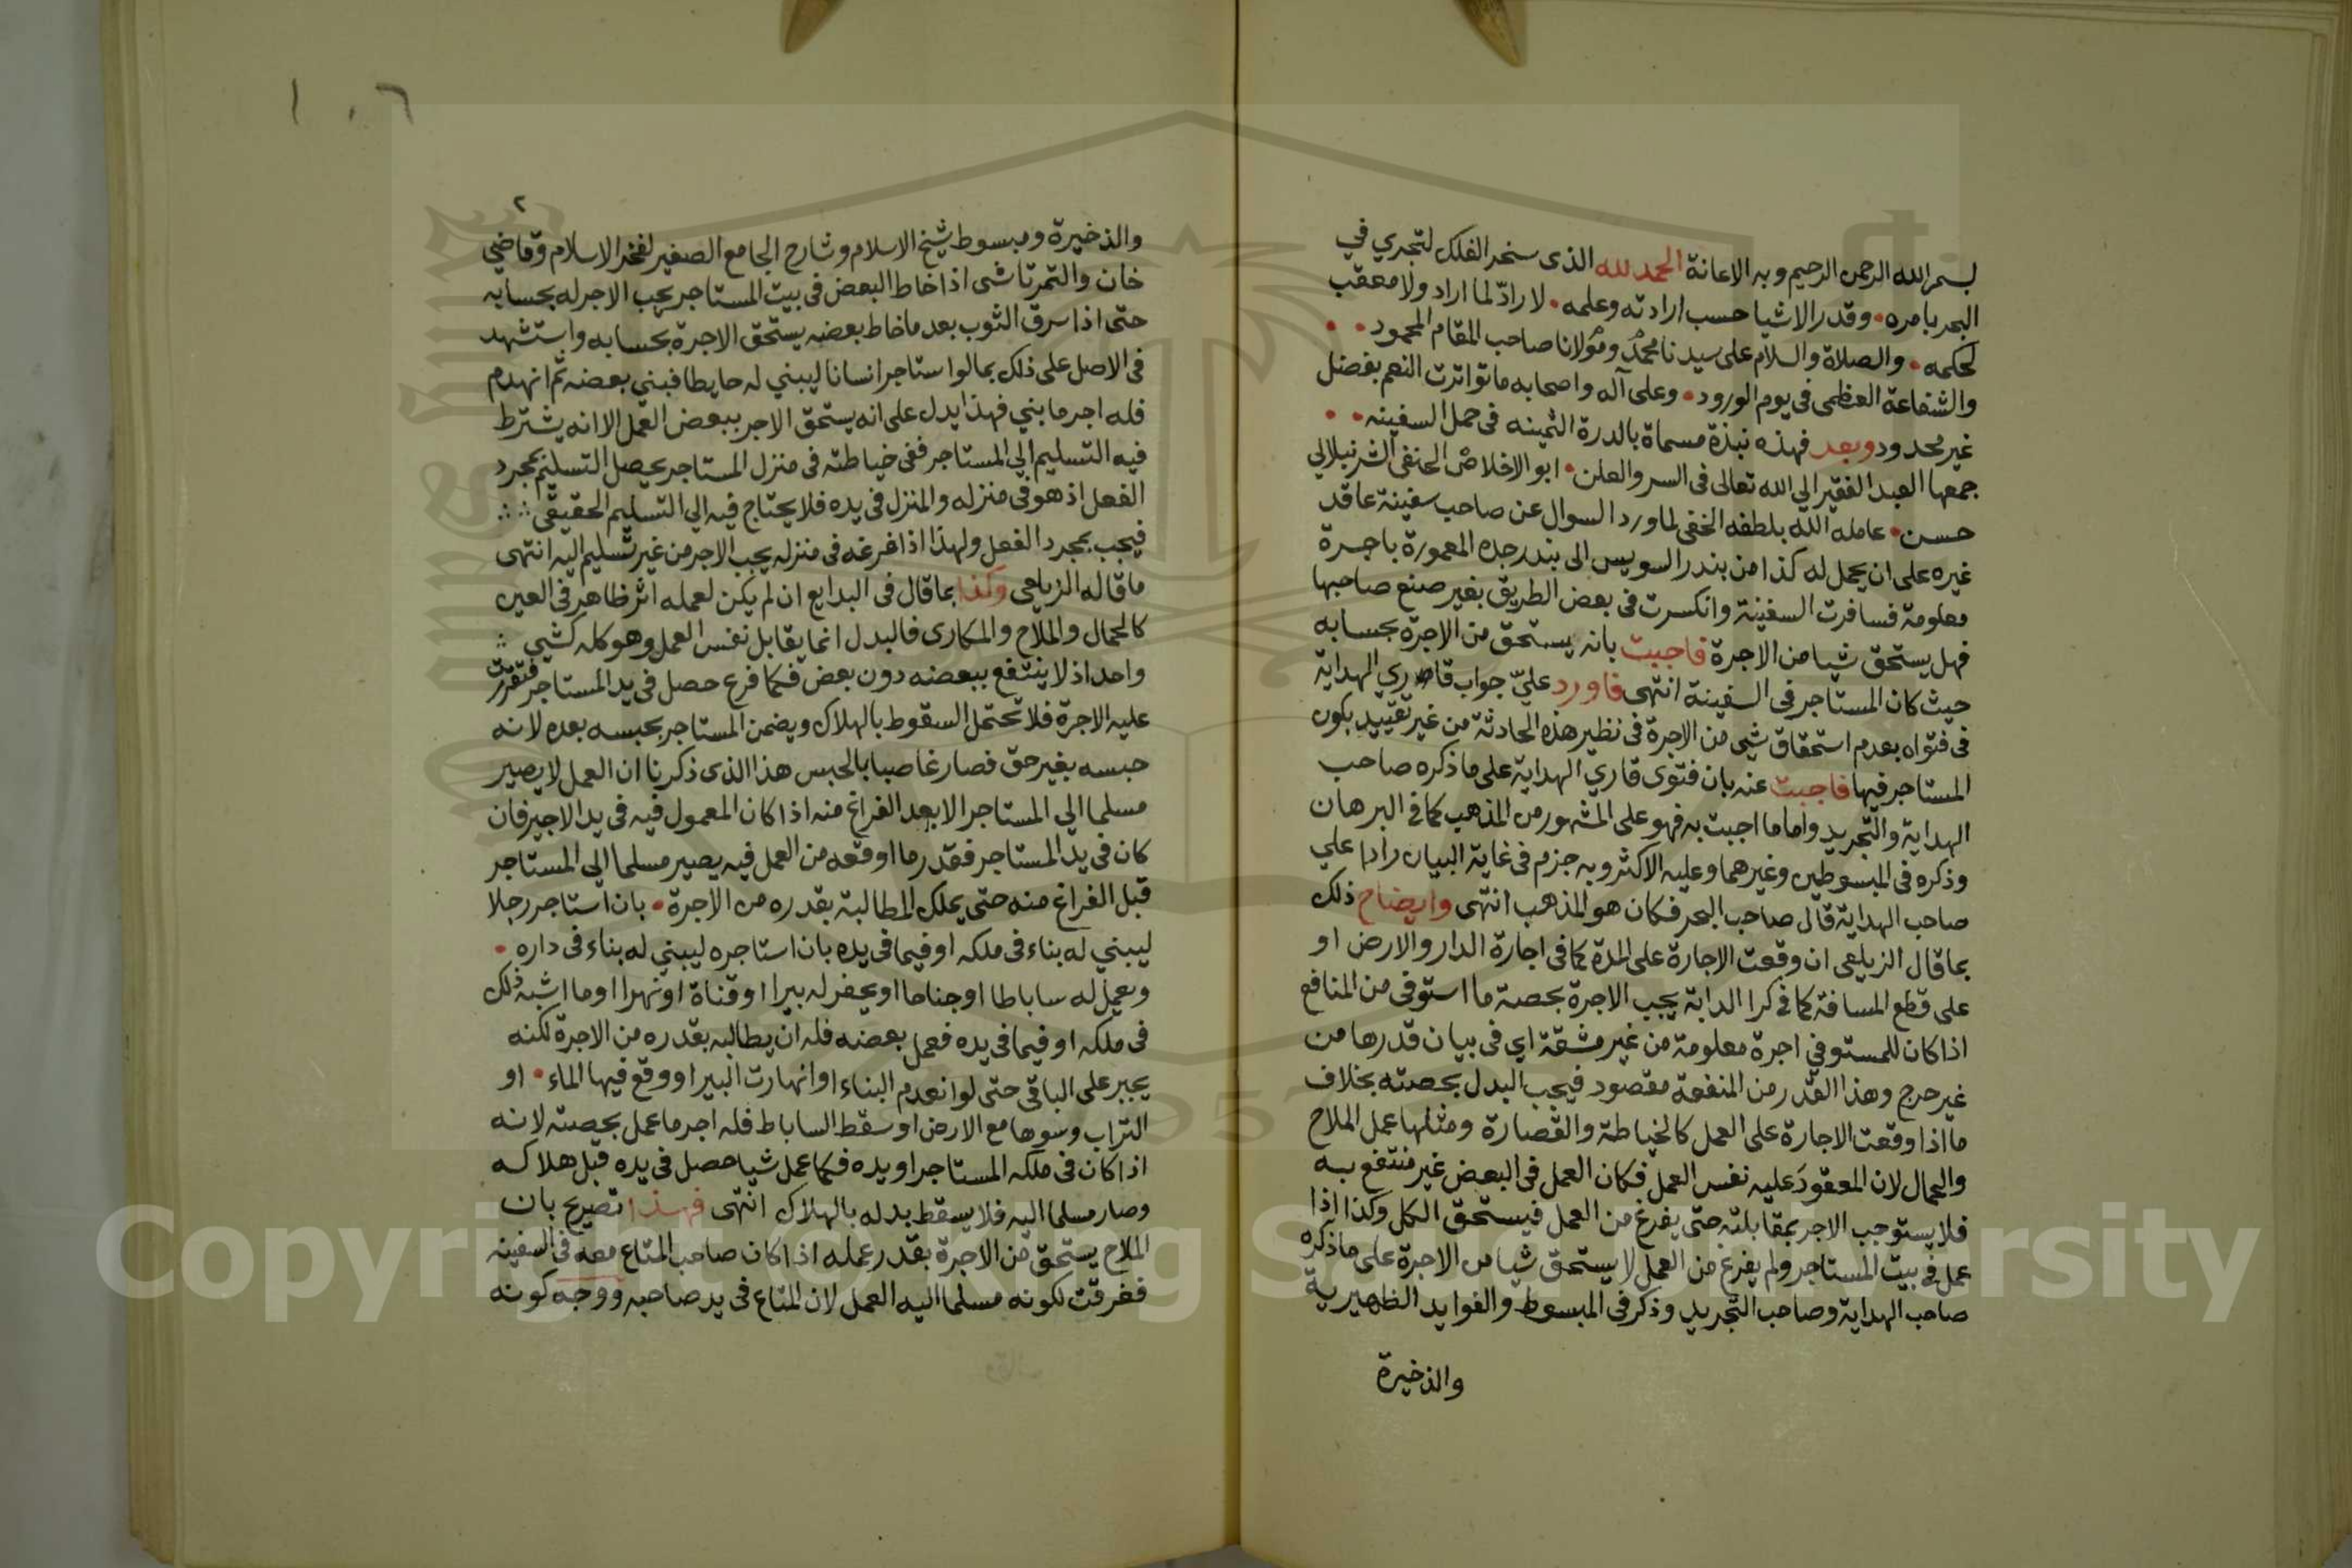 بسم الله الرحمن الرحيم وبه الاعانة الحمد لله الذى سخر الفلك لتجري في
البحر بامره • وقدر الاشيا حسب ارادته وعلمه • لا رادّ لما اراد ولا معقب
لحكمه • والصلاة والسلام على سيدنا محمد ومولانا صاحب المقام المحمود • •
والشفاعة العظمى فى يوم الورود • وعلى آله واصحابه ما تواترت النعم بفضل
غير محدود وبعد فهذه نبذة مسماة بالدرة الثمينه فى حمل السفينه • •
جمعها العبد الفقير الي الله تعالى فى السر والعلن • ابو الاخلاص الحنفى الشرنبلالي
حسن • عامله الله بلطفه الخفى لما ورد السوال عن صاحب سفينة عاقد
غيره على ان يحمل له كذا من بندر السويس الى بندر جده المعمورة باجرة
معلومة فسافرت السفينة وانكسرت فى بعض الطريق بغير صنع صاحبها
فهل يستحق شيا من الاجرة فاجبت بانه يستحق من الاجرة بحسابه
حيث كان المستاجر فى السفينة انتهى فاورد عليّ جواب قاري الهداية
فى فتواه بعدم استحقاق شى من الاجرة فى نظير هذه الحادثة من غير تقييد بكون
المستاجر فيها فاجبت عنه بان فتوى قاري الهداية على ما ذكره صاحب
الهداية والتجريد واما ما اجبت به فهو على المشهور من المذهب كما فى البرهان
وذكره فى المبسوطين وغيرهما وعليه الاكثر وبه جزم فى غاية البيان رادا علي
صاحب الهداية قال صاحب البحر فكان هو المذهب انتهى وايضاح ذلك
بما قال الزيلعى ان وقعت الاجارة على المدة كما فى اجارة الدار والارض او
على قطع المسافة كما فى كرا الدابة يجب الاجرة بحصة ما استوفى من المنافع
اذا كان للمستوفي اجرة معلومة من غير مشقة اي فى بيان قدرها من
غير حرج وهذا القدر من المنفعة مقصود فيجب البدل بحصته بخلاف
ما اذا وقعت الاجارة على العمل كالخياطة والقصارة ومثلها عمل الملاح
والحمال لان المعقود عليه نفس العمل فكان العمل فى البعض غير منتفع به
فلا يستوجب الاجر بمقابلته حتى يفرغ من العمل فيستحق الكل وكذا اذا
عمل فى بيت المستاجر ولم يفرغ من العمل لا يستحق شيا من الاجرة على ما ذكره
صاحب الهداية وصاحب التجريد وذكر فى المبسوط والفوايد الظهيرية
والذخيرة
١٠٦
٢
والذخيرة ومبسوط شيخ الاسلام وشارح الجامع الصغير لفخر الاسلام وقاضي
خان والتمرتاشى اذا خاط البعض فى بيت المستاجر يجب الاجر له بحسابه
حتى اذا سرق الثوب بعد ما خاط بعضه يستحق الاجرة بحسابه واستشهد
فى الاصل على ذلك بما لو استاجر انسانا ليبني له حايطا فبني بعضه ثم انهدم
فله اجر ما بني فهذا يدل على انه يستحق الاجر ببعض العمل الا انه يشترط
فيه التسليم الي المستاجر ففى خياطته فى منزل المستاجر يحصل التسليم بمجرد
الفعل اذ هو فى منزله والمنزل فى يده فلا يحتاج فيه الي التسليم الحقيقى
فيجب بمجرد الفعل ولهذا اذا فرغه فى منزله يجب الاجر من غير تسليم اليه انتهى
ما قاله الزيلعى وكذا بما قال فى البدايع ان لم يكن لعمله اثر ظاهر فى العين
كالحمال والملاح والمكارى فالبدل انما يقابل نفس العمل وهو كله كشيي
واحد اذ لا ينتفع ببعضه دون بعض فكما فرع حصل فى يد المستاجر فتقررت
عليه الاجرة فلا تحتمل السقوط بالهلاك ويضمن المستاجر بحبسه بعده لانه
حبسه بغير حق فصار غاصبا بالحبس هذا الذى ذكرنا ان العمل لا يصير
مسلما الي المستاجر الا بعد الفراغ منه اذا كان المعمول فيه فى يد الاجير فان
كان فى يد المستاجر فقدر ما اوقعه من العمل فيه يصير مسلما الي المستاجر
قبل الفراغ منه حتى يملك المطالبة بقدره من الاجرة • بان استاجر رجلا
ليبني له بناء فى ملكه او فيما فى يده بان استاجره ليبني له بناء فى داره •
ويعمل له ساباطا او جناحا او يحفر له بيرا او قناة او نهرا او ما اشبه ذلك
فى ملكه او فيما فى يده فعمل بعضه فله ان يطالبه بقدره من الاجرة لكنه
يجبر على الباقى حتى لو انهدم البناء او انهارت البير او وقع فيها الماء • او
التراب وسوها مع الارض او سقط الساباط فله اجر ما عمل بحصته لانه
اذا كان فى ملك المستاجر او يده فكما عمل شيا حصل فى يده قبل هلاكه
وصار مسلما اليه فلا يسقط بدله بالهلاك انتهى فهذا تصريح بان
الملاح يستحق من الاجرة بقدر عمله اذا كان صاحب المتاع معه فى السفينه
فغرقت لكونه مسلما اليه العمل لان المتاع فى يد صاحبه ووجه كونه
Copyright © King Saud University